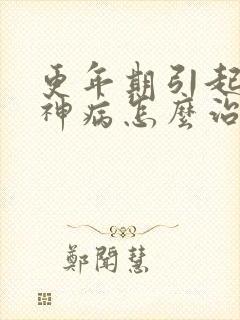 更年期引起
神病怎麼治
鄭聞慧